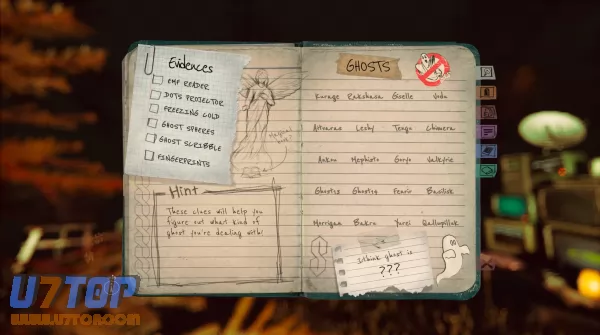 Evidences
EMF READER
DOTS PROJECTOR
FREEZING COLD
GHOST SPHERES
GHOST SCRIBBLE
FINGERPRINTS
Hint
These clues will help you
figure out what kind of
ghost you're dealing with!
GHOSTS
Kurage Rakshasa Giselle Vodu
Leshy Tengu Chimera
Ankou Mephisto Goryo Valkyrie
Fenrir Basilisk
Morrigan Bakro Yurei Qallupilluk
I think ghost is
???
U7TOP
WWW.U7TOP.COM